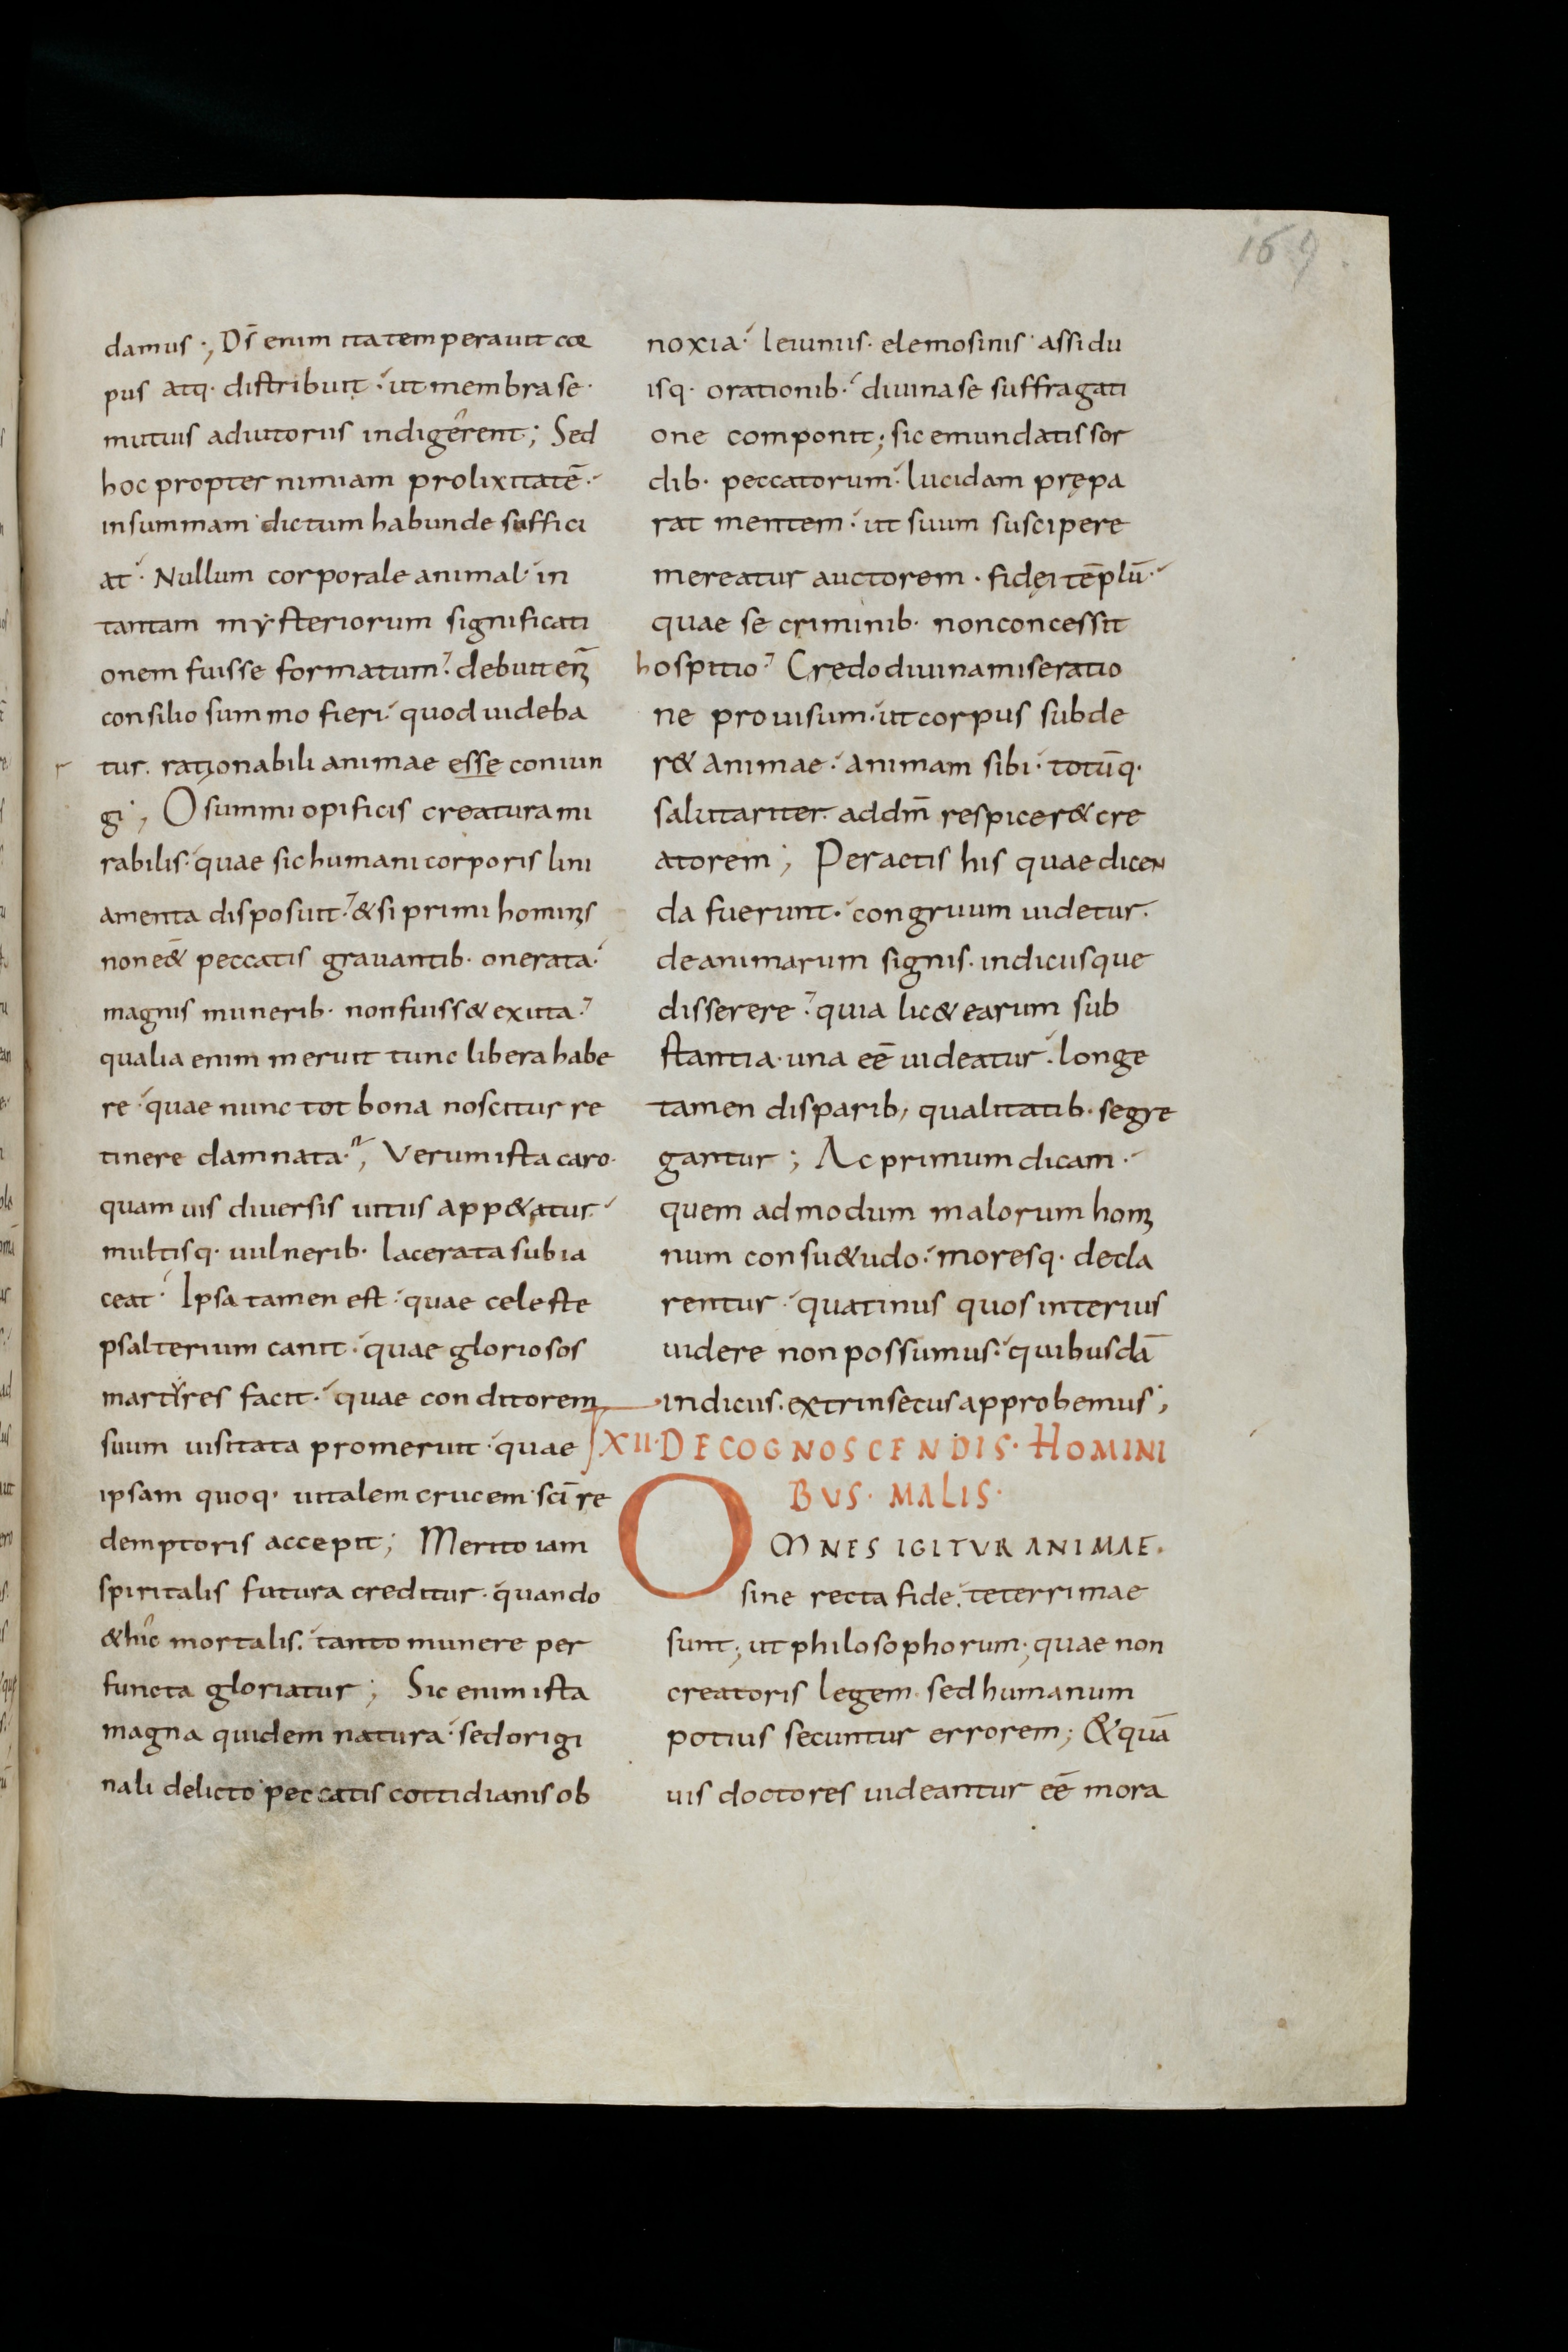 169
damus·; Ds̄ enim ita temperauit cor
pus atq· distribuit· ut membra se·
mutuis adiutoriis indigerent; Sed
hoc propter nimiam prolixitatē·
in summam dictum habunde suffici
at· Nullum corporale animal· in
tantam mysteriorum significati
onem fuisse formatum· debuit eni̅
consilio summo fieri· quod uideba
tur· rationabili animae esse coniun
gi; O summi opificis creatura mi
rabilis· quae sic humani corporis lini
amenta disposuit· & si primi hominis
non e&̄ peccatis grauantib· onerata·
magnis munerib· non fuiss& exuta·
qualia enim meruit tunc libera habe
re· quae nunc tot bona noscitur re
tinere damnata·; Verum ista caro·
quam uis diuersis uitiis app&atur·
multisq· uulnerib· lacerata subia
ceat· Ipsa tamen est· quae celeste
psalterium canit· quae gloriosos
martyres facit· quae conditorem
suum uisitata promeruit· quae
ipsam quoq· uitalem crucem sc̄i re
demptoris accepit; Merito iam
spiritalis futura creditur· quando
& hic mortalis· tanto munere per
functa gloriatur; Sic enim ista
magna quidem natura· sed origi
nali delicto peccatis cottidianis ob
noxia· Ieiuniis· elemosinis· assidu
isq· orationib· diuina se suffragati
one componit; sic emundatis sor
dib· peccatorum· lucidam prępa
rat mentem· ut suum suscipere
mereatur auctorem· fidei tēplū·
quae se criminib· non concessit
hospitio· Credo diuina miseratio
ne prouisum· ut corpus subde
r& animae· animam sibi· totūq·
salutariter· ad dm̄ respicer& cre
atorem; Peractis his quae dicen
da fuerunt· congruum uidetur·
de animarum signis· indiciisque
disserere· quia lic& earum sub
stantia· una eē uideatur· longe
tamen disparib· qualitatib· segre
gantur; Ac primum dicam·
quem ad modum malorum homi
num consu&udo· moresq· decla
rentur· quatinus quos interius
uidere non possumus· quibusdā
indiciis· extrinsecus approbemus;
XII· DE COGNOSCENDIS· HOMINI
BUS· MALIS·
OMNES IGITUR ANIMAE·
sine recta fide· teterrimae
sunt; ut philosophorum; quae non
creatoris legem· sed humanum
potius secuntur errorem; & quā
uis doctores uideantur eē mora